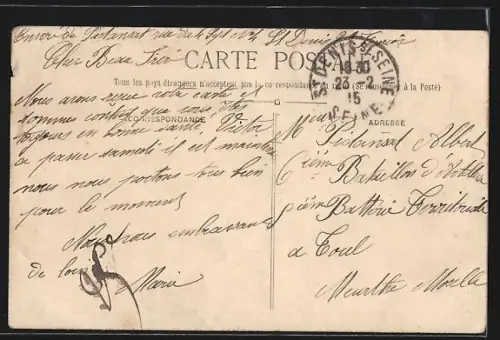 Envoi de Pistansat rue du 4 Sept No 4 St Denis
Cher Beau
CARTE POSTALE
Tous les pays étrangers n'acceptent pas la correspondance au recto (Se renseigner à la Poste)
CORRESPONDANCE
ADRESSE
ST DENIS S/ SEINE
23 - 2
15
SEINE
Nous avons reçu votre carte et
sommes content que vous êtes
toujours en bonne santé Victor
a passer samedi et est
nous nous portons tres bien
pour le moment
Nous vous embrassons
de loin
Marie
Pistansat Albert
6 ième Bataillon d'
ième Batterie Territoriale
a Toul
Meurthe Moselle